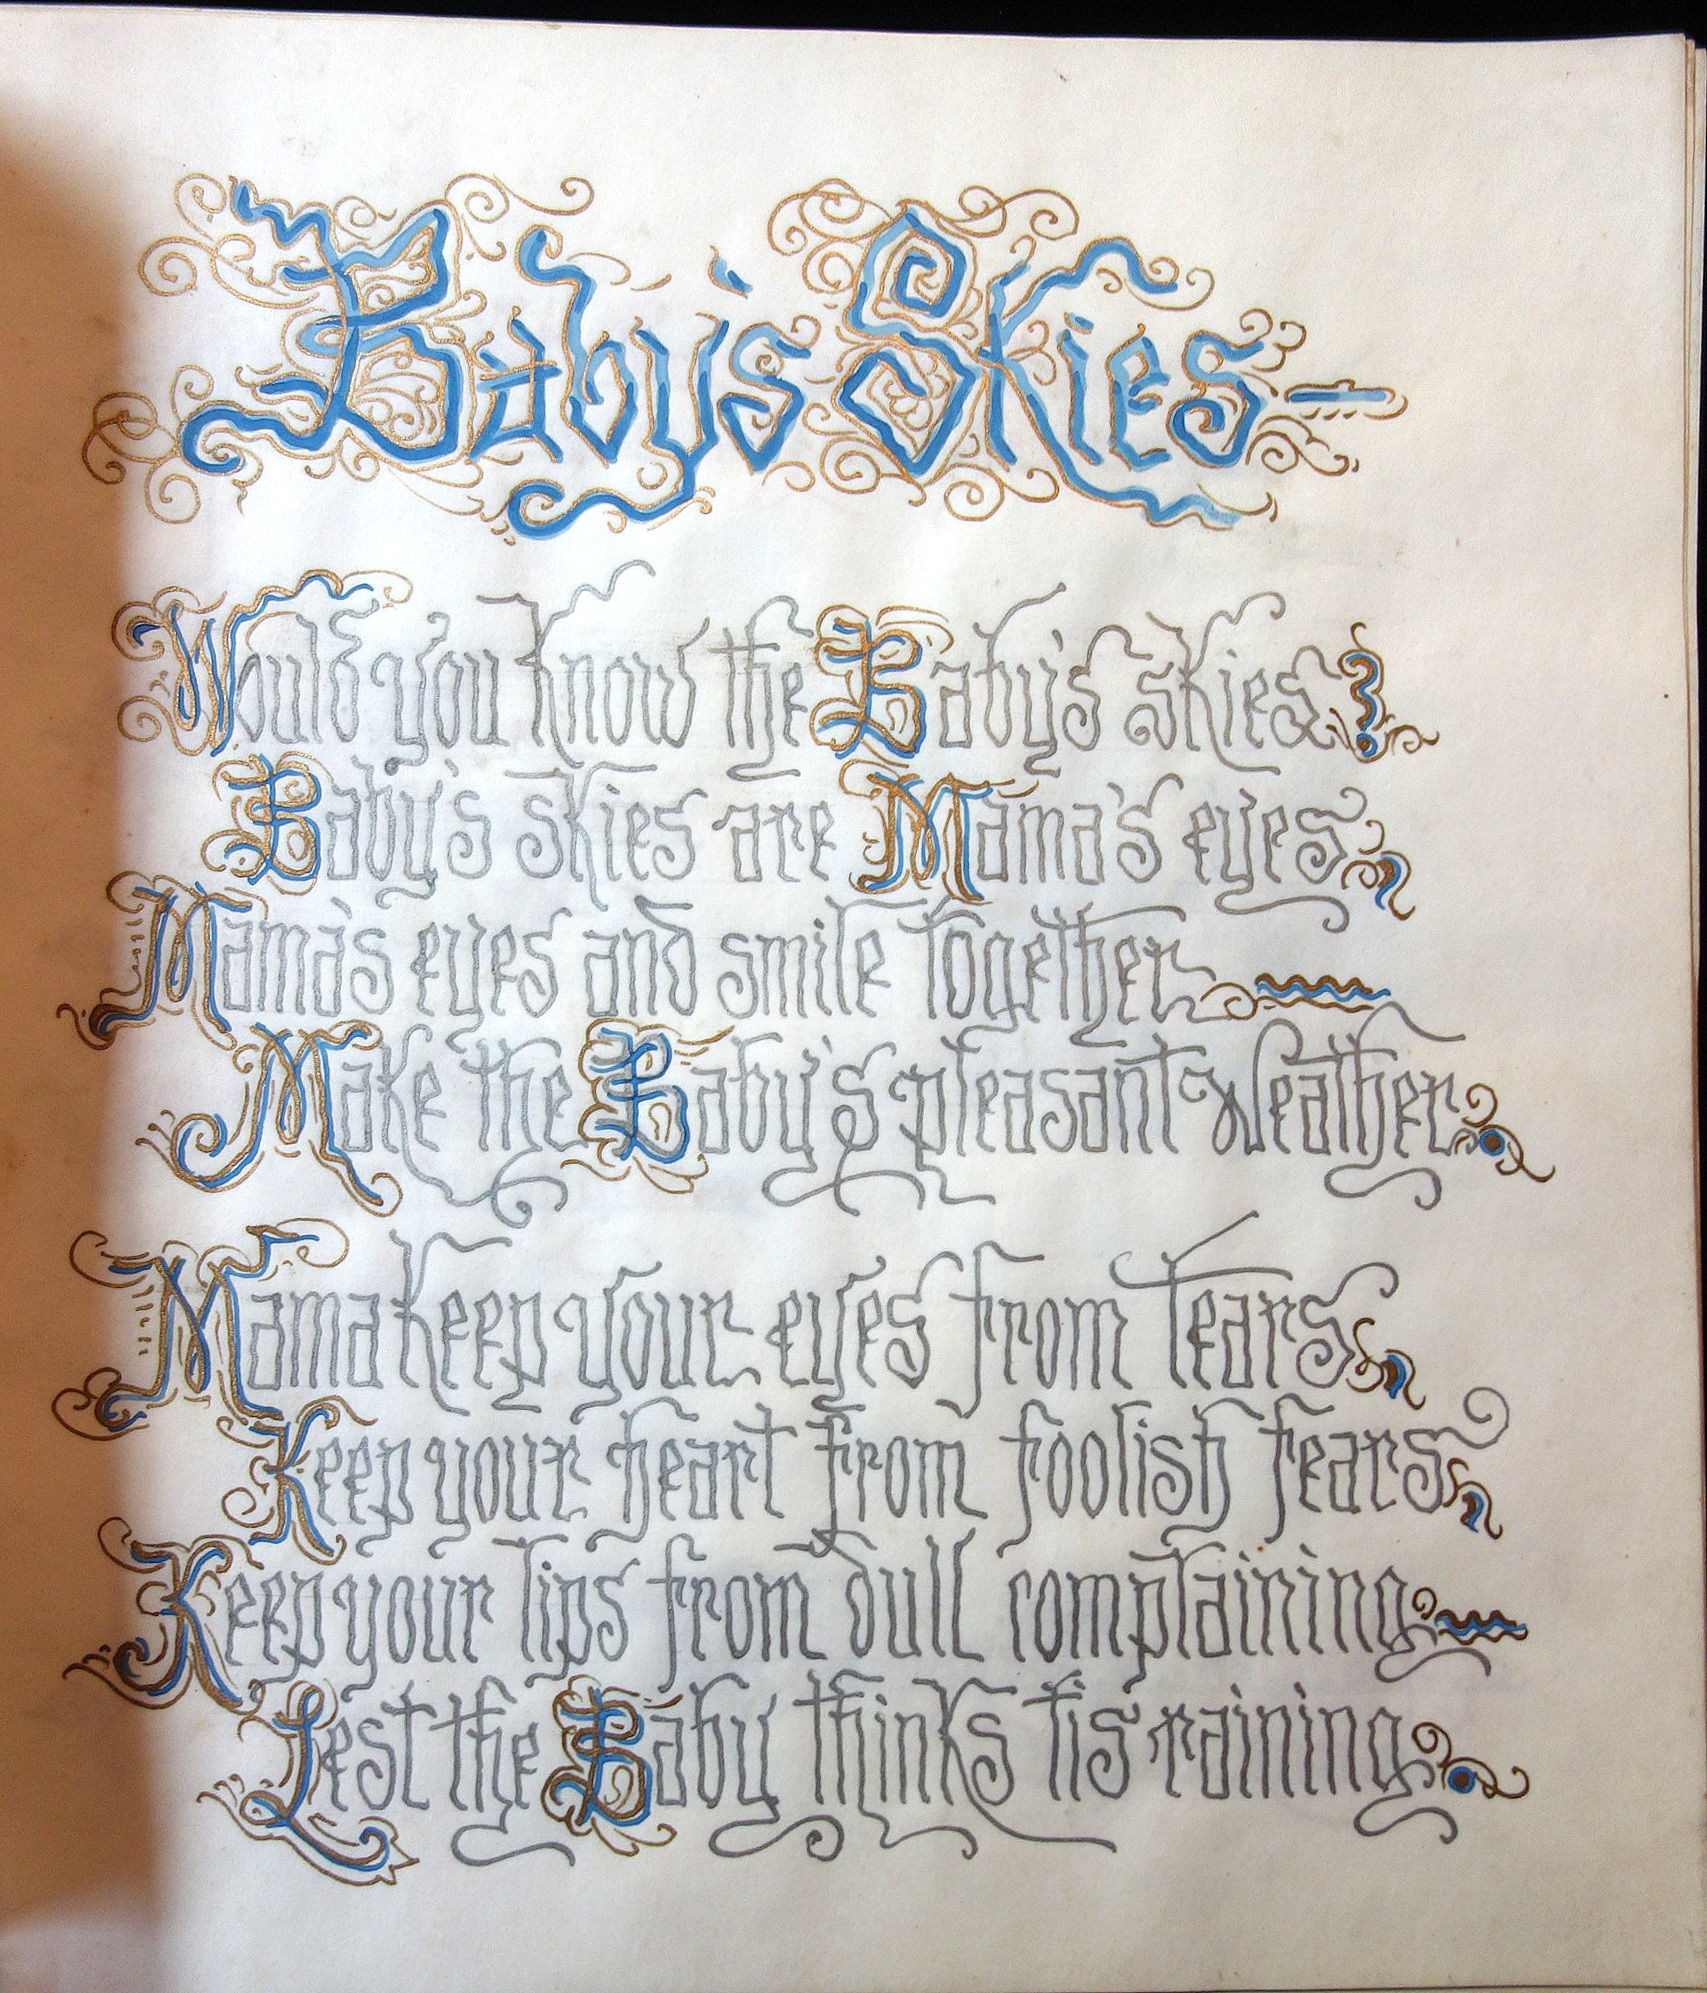 Baby's Skies—
Would you know the Baby's skies?
Baby's skies are Mama's eyes,
Mama's eyes and smile together
Make the Baby's pleasant Weather.
Mama keep your eyes from Tears,
Keep your heart from foolish fears,
Keep your lips from dull complaining—
Lest the Baby thinks tis raining.